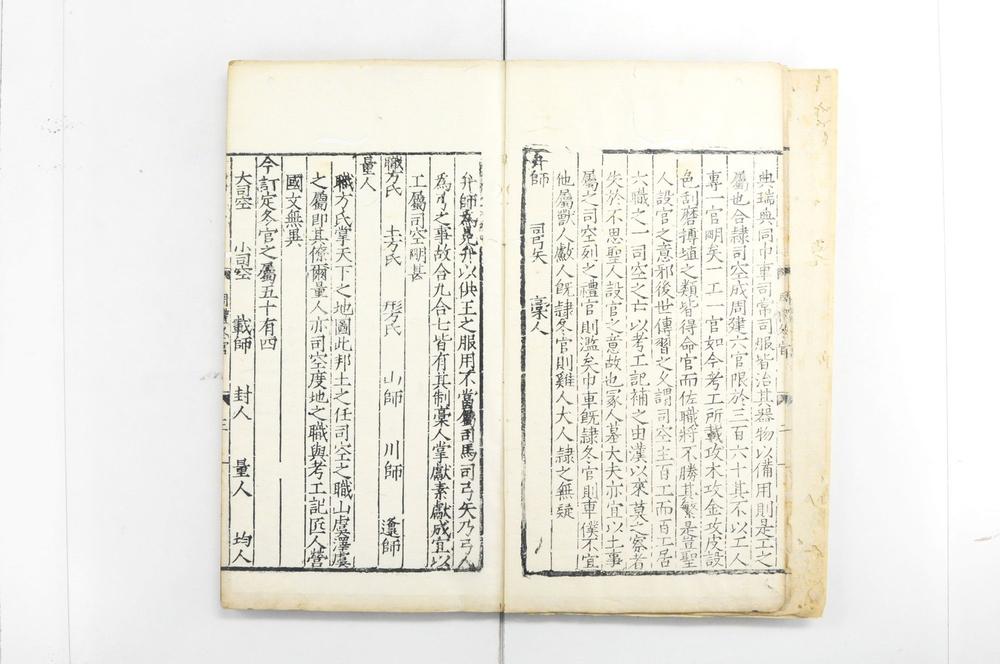 典瑞典同巾車司常司服皆治其器物以備用則是工之
屬也合隸司空成周建六官限於三百六十其不以工人
專一官明矣一工一官如今考工所載攻木攻金攻皮設
色刮磨摶埴之類皆得命官而佐職將不勝其繁是豈聖
人設官之意邪後世傳習之久謂司空主百工而百工居
六職之一司空之亡以考工記補之由漢以來莫之察者
失於不思聖人設官之意故也冢人墓大夫亦宜以土事
屬之司空列之禮官則濫矣巾車旣隸冬官則車僕不宜
他屬獸人䱷人旣隸冬官則雞人犬人隸之無疑
弁師 司弓矢 槀人
弁師爲冕弁以供王之服用不當屬司馬司弓矢乃弓人
爲弓之事故合九合七皆有其制槀人掌獻素獻成宜以
工屬司空明甚
職方氏 土方氏 形方氏 山師 川師 邍師
量人
職方氏掌天下之地圖此邦土之任司空之職山虞澤虞
之屬即其僚爾量人亦司空度地之職與考工記匠人營
國文無異
今訂定冬官之屬五十有四
大司空 小司空 載師 封人 量人 均人